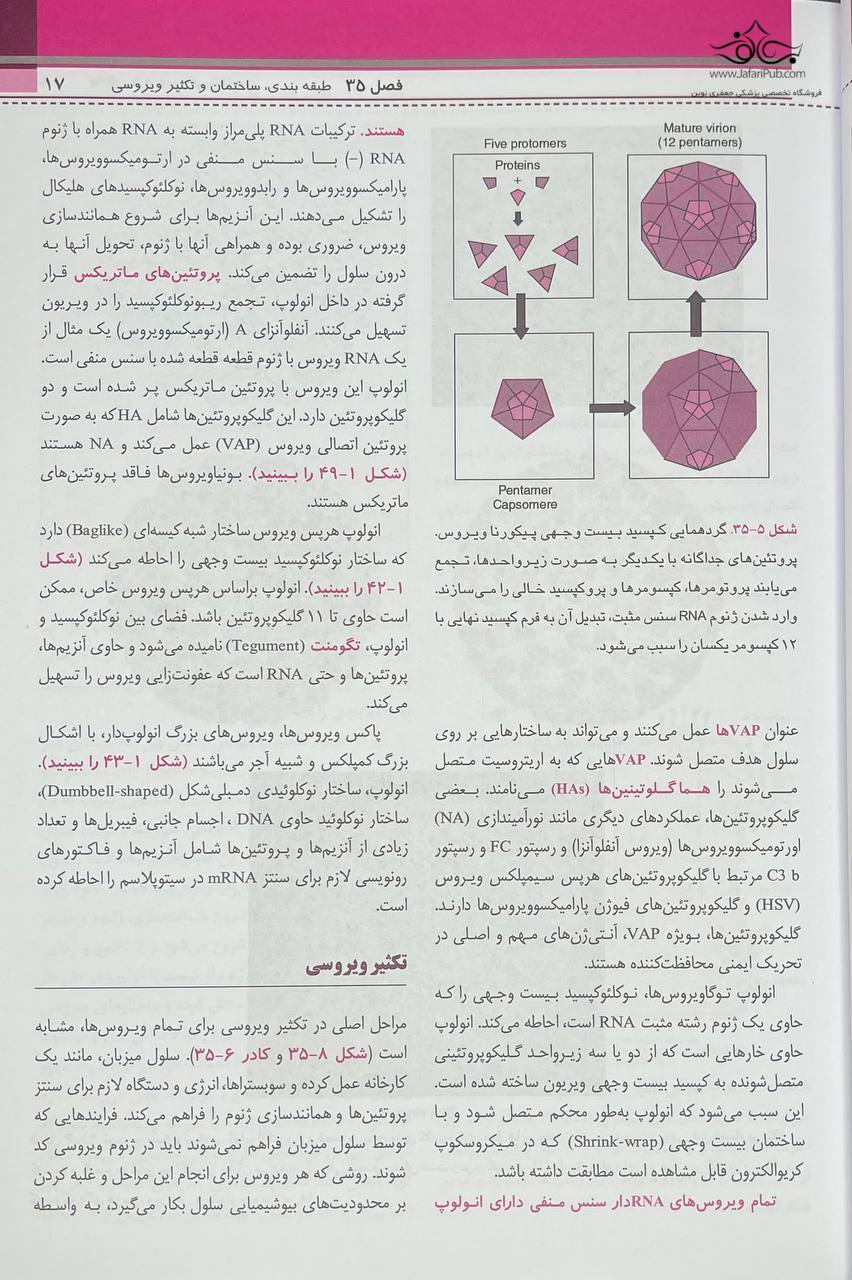 جعفری
www.JafariPub.com
فروشگاه تخصصی پزشکی جعفری نوین
فصل ۳۵ طبقه بندی، ساختمان و تکثیر ویروسی ۱۷
Five protomers
Proteins
+
Mature virion
(12 pentamers)
Pentamer
Capsomere
شکل ۵-۳۵. گردهمایی کپسید بیست وجهی پیکورنا ویروس.
پروتئین‌های جداگانه با یکدیگر به صورت زیرواحدها، تجمع
می‌یابند پروتومرها، کپسومرها و پروکپسید خالی را می‌سازند.
وارد شدن ژنوم RNA سنس مثبت، تبدیل آن به فرم کپسید نهایی با
۱۲ کپسومر یکسان را سبب می‌شود.
عنوان VAPها عمل می‌کنند و می‌تواند به ساختارهایی بر روی
سلول هدف متصل شوند. VAPهایی که به اریتروسیت متصل
می‌شوند را هماگلوتینین‌ها (HAs) می‌نامند. بعضی
گلیکوپروتئین‌ها، عملکردهای دیگری مانند نورآمیندازی (NA)
اورتومیکسوویروس‌ها (ویروس آنفلوآنزا) و رسپتور FC و رسپتور
C3 b مرتبط با گلیکوپروتئین‌های هرپس سیمپلکس ویروس
(HSV) و گلیکوپروتئین‌های فیوژن پارامیکسوویروس‌ها دارند.
گلیکوپروتئین‌ها، بویژه VAP، آنتی‌ژن‌های مهم و اصلی در
تحریک ایمنی محافظت‌کننده هستند.
انولوپ توگاویروس‌ها، نوکلئوکپسید بیست وجهی را که
حاوی یک ژنوم رشته مثبت RNA است، احاطه می‌کند. انولوپ
حاوی خارهایی است که از دو یا سه زیرواحد گلیکوپروتئینی
متصل‌شونده به کپسید بیست وجهی ویریون ساخته شده است.
این سبب می‌شود که انولوپ به‌طور محکم متصل شود و با
ساختمان بیست وجهی (Shrink-wrap) که در میکروسکوپ
کریوالکترون قابل مشاهده است مطابقت داشته باشد.
تمام ویروس‌های RNAدار سنس منفی دارای انولوپ
هستند. ترکیبات RNA پلی‌مراز وابسته به RNA همراه با ژنوم
RNA (−) با سنس منفی در ارتومیکسوویروس‌ها،
پارامیکسوویروس‌ها و رابدوویروس‌ها، نوکلئوکپسیدهای هلیکال
را تشکیل می‌دهند. این آنزیم‌ها برای شروع همانندسازی
ویروس، ضروری بوده و همراهی آنها با ژنوم، تحویل آنها به
درون سلول را تضمین می‌کند. پروتئین‌های ماتریکس قرار
گرفته در داخل انولوپ، تجمع ریبونوکلئوکپسید را در ویریون
تسهیل می‌کنند. آنفلوآنزای A (ارتومیکسوویروس) یک مثال از
یک RNA ویروس با ژنوم قطعه قطعه شده با سنس منفی است.
انولوپ این ویروس با پروتئین ماتریکس پر شده است و دو
گلیکوپروتئین دارد. این گلیکوپروتئین‌ها شامل HA که به صورت
پروتئین اتصالی ویروس (VAP) عمل می‌کند و NA هستند
(شکل ۱-۴۹ را ببینید). بونیاویروس‌ها فاقد پروتئین‌های
ماتریکس هستند.
انولوپ هرپس ویروس ساختار شبه کیسه‌ای (Baglike) دارد
که ساختار نوکلئوکپسید بیست وجهی را احاطه می‌کند (شکل
۱-۴۲ را ببینید). انولوپ براساس هرپس ویروس خاص، ممکن
است حاوی تا ۱۱ گلیکوپروتئین باشد. فضای بین نوکلئوکپسید و
انولوپ، تگومنت (Tegument) نامیده می‌شود و حاوی آنزیم‌ها،
پروتئین‌ها و حتی RNA است که عفونت‌زایی ویروس را تسهیل
می‌کند.
پاکس ویروس‌ها، ویروس‌های بزرگ انولوپ‌دار، با اشکال
بزرگ کمپلکس و شبیه آجر می‌باشند (شکل ۱-۴۳ را ببینید).
انولوپ، ساختار نوکلوئیدی دمبلی‌شکل (Dumbbell-shaped)،
ساختار نوکلوئید حاوی DNA ، اجسام جانبی، فیبریل‌ها و تعداد
زیادی از آنزیم‌ها و پروتئین‌ها شامل آنزیم‌ها و فاکتورهای
رونویسی لازم برای سنتز mRNA در سیتوپلاسم را احاطه کرده
است.
تکثیر ویروسی
مراحل اصلی در تکثیر ویروسی برای تمام ویروس‌ها، مشابه
است (شکل ۸-۳۵ و کادر ۶-۳۵). سلول میزبان، مانند یک
کارخانه عمل کرده و سوبستراها، انرژی و دستگاه لازم برای سنتز
پروتئین‌ها و همانندسازی ژنوم را فراهم می‌کند. فرایندهایی که
توسط سلول میزبان فراهم نمی‌شوند باید در ژنوم ویروسی کد
شوند. روشی که هر ویروس برای انجام این مراحل و غلبه کردن
بر محدودیت‌های بیوشیمیایی سلول بکار می‌گیرد، به واسطه